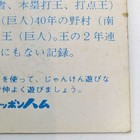 書、本塁打王、打点王)
(巨人)40年の野村(南
王(巨人)。王の2年連
にもない記録。
を使って、じゃんけん遊びな
仲よく遊びましょう。
ッポンハム